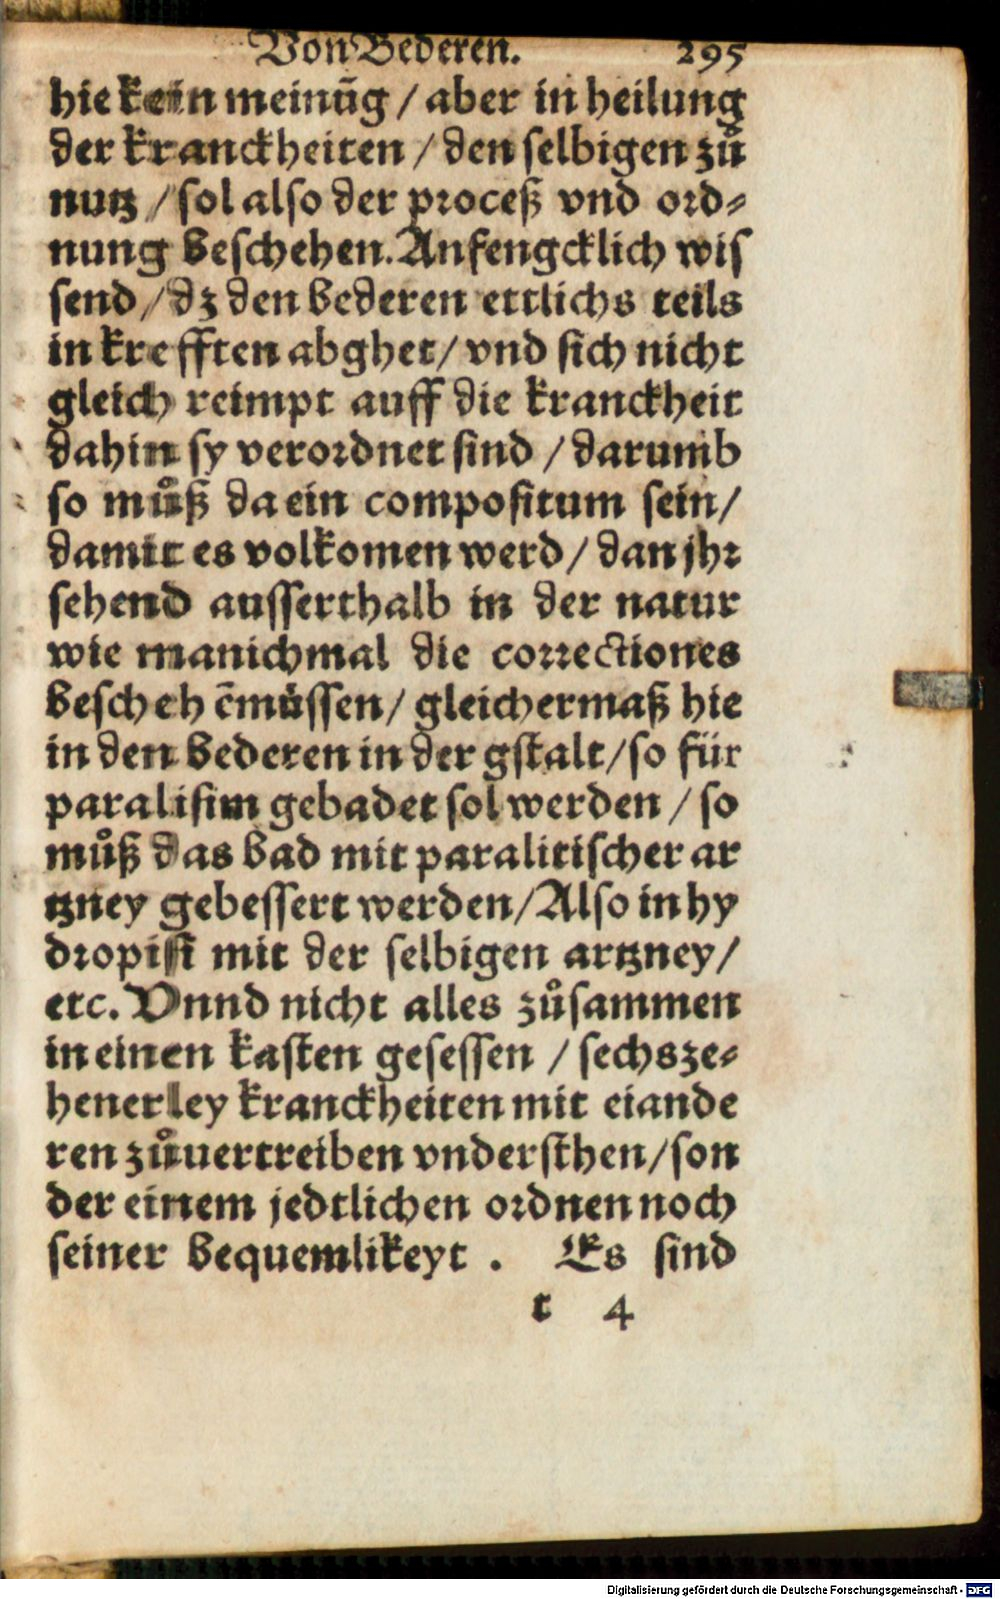 Von Bederen. 295
hie kein meinūg / aber in heilung
der kranckheiten / den selbigen zů
nutz / sol also der proceß vnd ord-
nung beschehen. Anfengcklich wis
send / dz den bederen ettlichs teils
in krefften abghet / vnd sich nicht
gleich reimpt auff die kranckheit
dahin sy verordnet sind / darumb
so můß da ein compositum sein /
damit es volkomen werd / dan jhr
sehend ausserthalb in der natur
wie manichmal die correctiones
beschehē müssen / gleichermaß hie
in den bederen in der gstalt / so für
paralisim gebadet sol werden / so
můß das bad mit paralitischer ar
tzney gebessert werden / Also in hy
dropisi mit der selbigen artzney /
etc. Vnnd nicht alles zůsammen
in einen kasten gesessen / sechsze-
henerley kranckheiten mit eiande
ren zůuertreiben vndersthen / son
der einem jedtlichen ordnen noch
seiner bequemlikeyt . Es sind
t 4
Digitalisierung gefördert durch die Deutsche Forschungsgemeinschaft - DFG